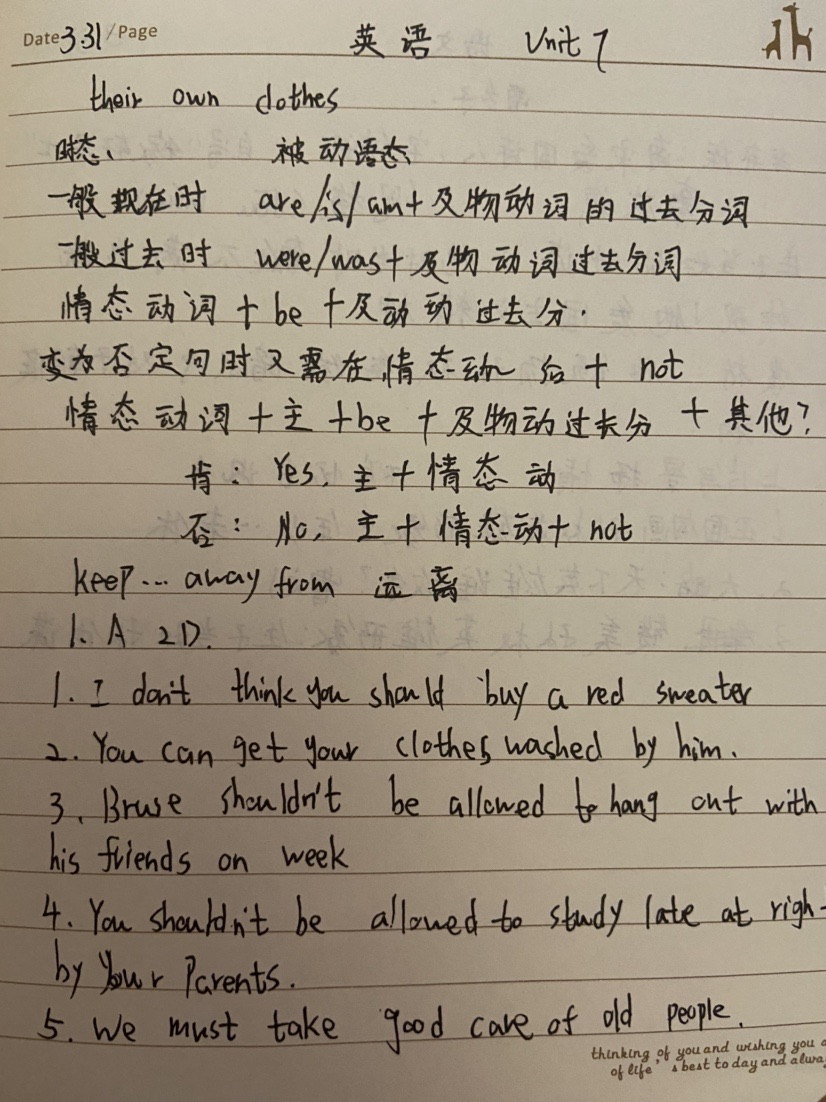 Date 3.31 / Page
英语 Unit 7
their own clothes
时态、 被动语态
一般现在时 are/is/am+及物动词的过去分词
一般过去时 were/was+及物动词过去分词
情态动词+be+及动动过去分.
变为否定句时又需在情态动 后+ not
情态动词+主+be+及物动过去分+其他?
肯: Yes, 主+情态动
否: No, 主+情态动+ not
keep... away from 远离
1. A 2D.
1. I don't think you should buy a red sweater
2. You can get your clothes washed by him.
3. Bruse shouldn't be allowed to hang out with
his friends on week
4. You shouldn't be allowed to study late at righ
by your Parents.
5. We must take good care of old people.
thinking of you and wishing you a
of life's best to day and alwa